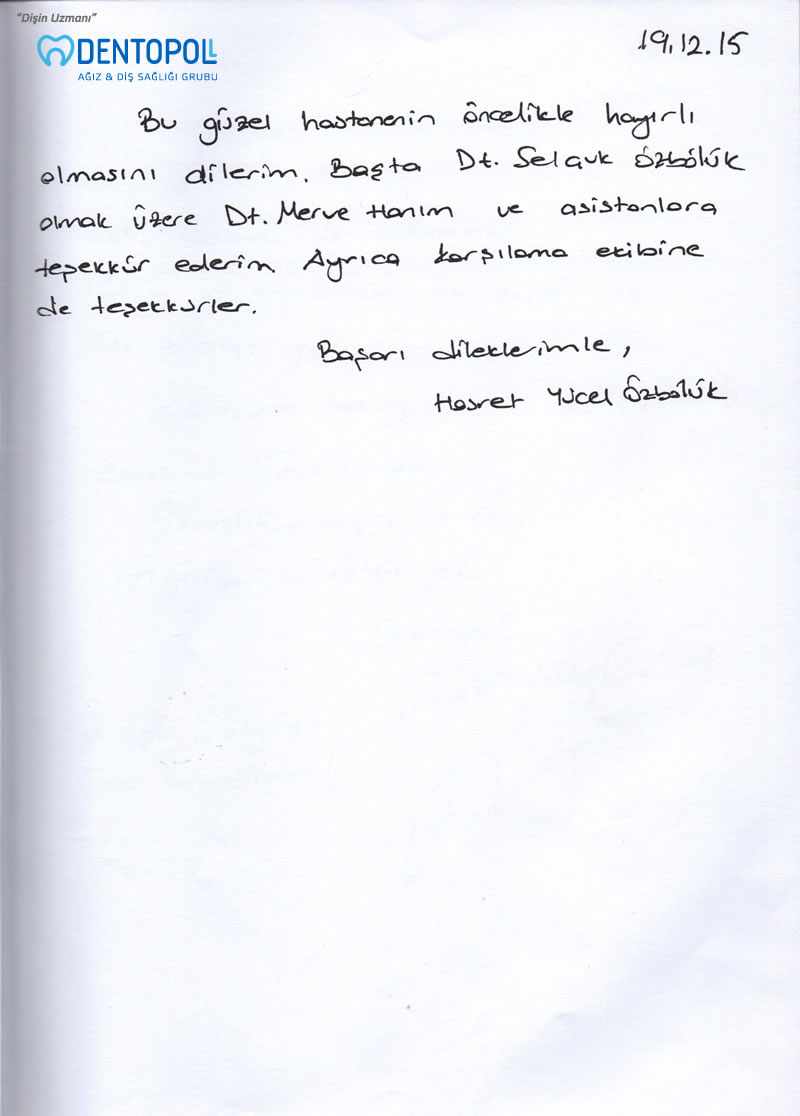 "Dişin Uzmanı"
DENTOPOLL
AĞIZ & DİŞ SAĞLIĞI GRUBU
19.12.15
Bu güzel hastanenin öncelikle hayırlı
olmasını dilerim. Başta Dt. Selçuk Özbölük
olmak üzere Dt. Merve Hanım ve asistanlara
teşekkür ederim. Ayrıca karşılama ekibine
de teşekkürler.
Başarı dileklerimle,
Hasret Yücel Özbölük